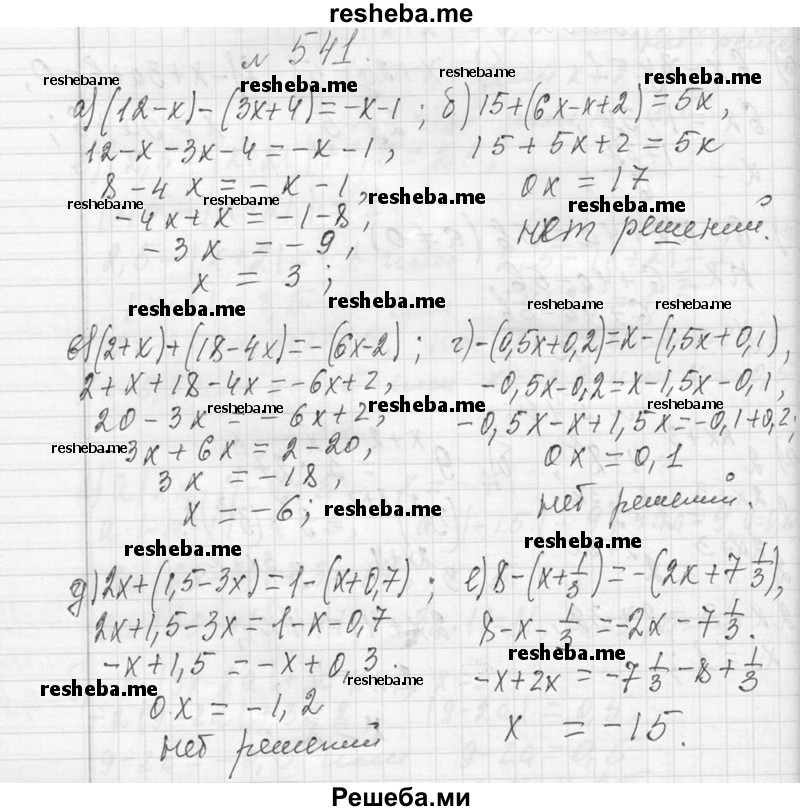 resheba.me
№ 541.
resheba.me resheba.me resheba.me
а) (12-x)-(3x+4)=-x-1; б) 15+(6x-x+2)=5x,
12-x-3x-4=-x-1, 15+5x+2=5x
8-4x=-x-1, 0x=17
resheba.me resheba.me resheba.me
-4x+x=-1-8, нет решений.
-3x=-9,
x=3;
resheba.me resheba.me resheba.me resheba.me
в) (2+x)+(18-4x)=-(6x-2); г) -(0,5x+0,2)=x-(1,5x+0,1),
2+x+18-4x=-6x+2, -0,5x-0,2=x-1,5x-0,1,
resheba.me resheba.me resheba.me
20-3x=-6x+2, -0,5x-x+1,5x=-0,1+0,2;
resheba.me
-3x+6x=2-20, 0x=0,1
3x=-18, нет решений.
x=-6; resheba.me
resheba.me resheba.me
д) 2x+(1,5-3x)=1-(x+0,7); е) 8-(x+1/3)=-(2x+7 1/3),
2x+1,5-3x=1-x-0,7 8-x-1/3=-2x-7 1/3.
-x+1,5=-x+0,3. resheba.me
resheba.me resheba.me -x+2x=-7 1/3-8+1/3
0x=-1,2 x=-15.
нет решений
Решеба.ми